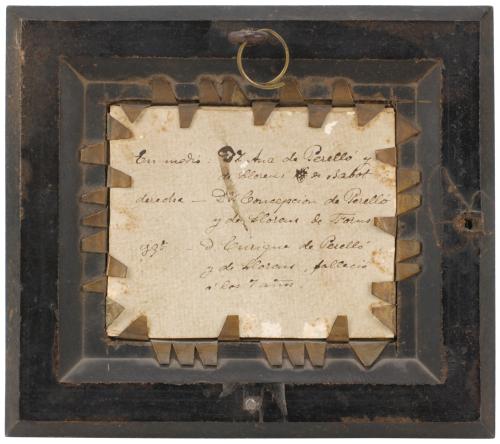 En medio Dª Ana de Perelló y
de Llorens de Sabot
derecha — Dª Concepcion de Perelló
y de Llorens de Torns
izqª — D. Enrique de Perelló
y de Llorens, falleció
á los 7 años.